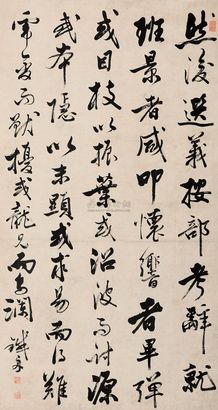 然後選義按部考辭就
班景者咸叩懷響者畢彈
或因枝以振葉或沿波而討源
或本隱以末顯或求易而得難
虎變而獸擾或龍見而鳥瀾 鐵保